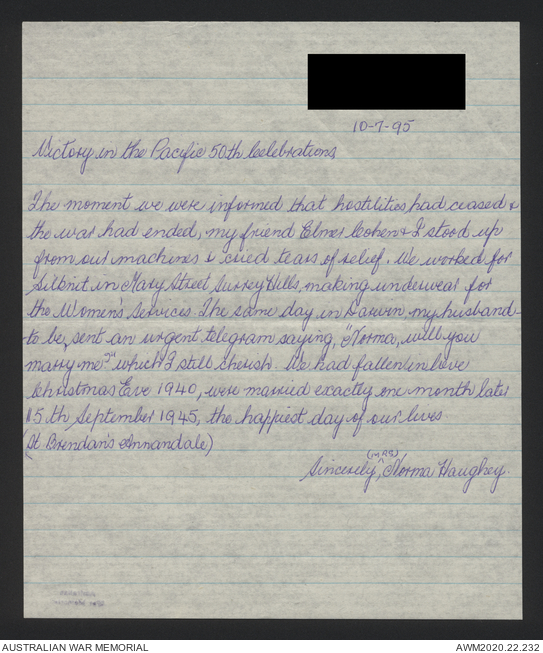 10-7-95
Victory in the Pacific 50th Celebrations
The moment we were informed that hostilities had ceased &
the war had ended, my friend Elmer Cohen & I stood up
from our machines & cried tears of relief. We worked for
Silknit in Mary Street Surrey Hills, making underwear for
the Women's Services. The same day in Darwin, my husband-
to be, sent an urgent telegram saying, "Norma, will you
marry me?" which I still cherish. We had fallen in love
Christmas Eve 1940, were married exactly one month later
15th September 1945, the happiest day of our lives
(St Brendan's Annandale)
Sincerely, (MRS) Norma Haughey.
AUSTRALIAN WAR MEMORIAL
AWM2020.22.232